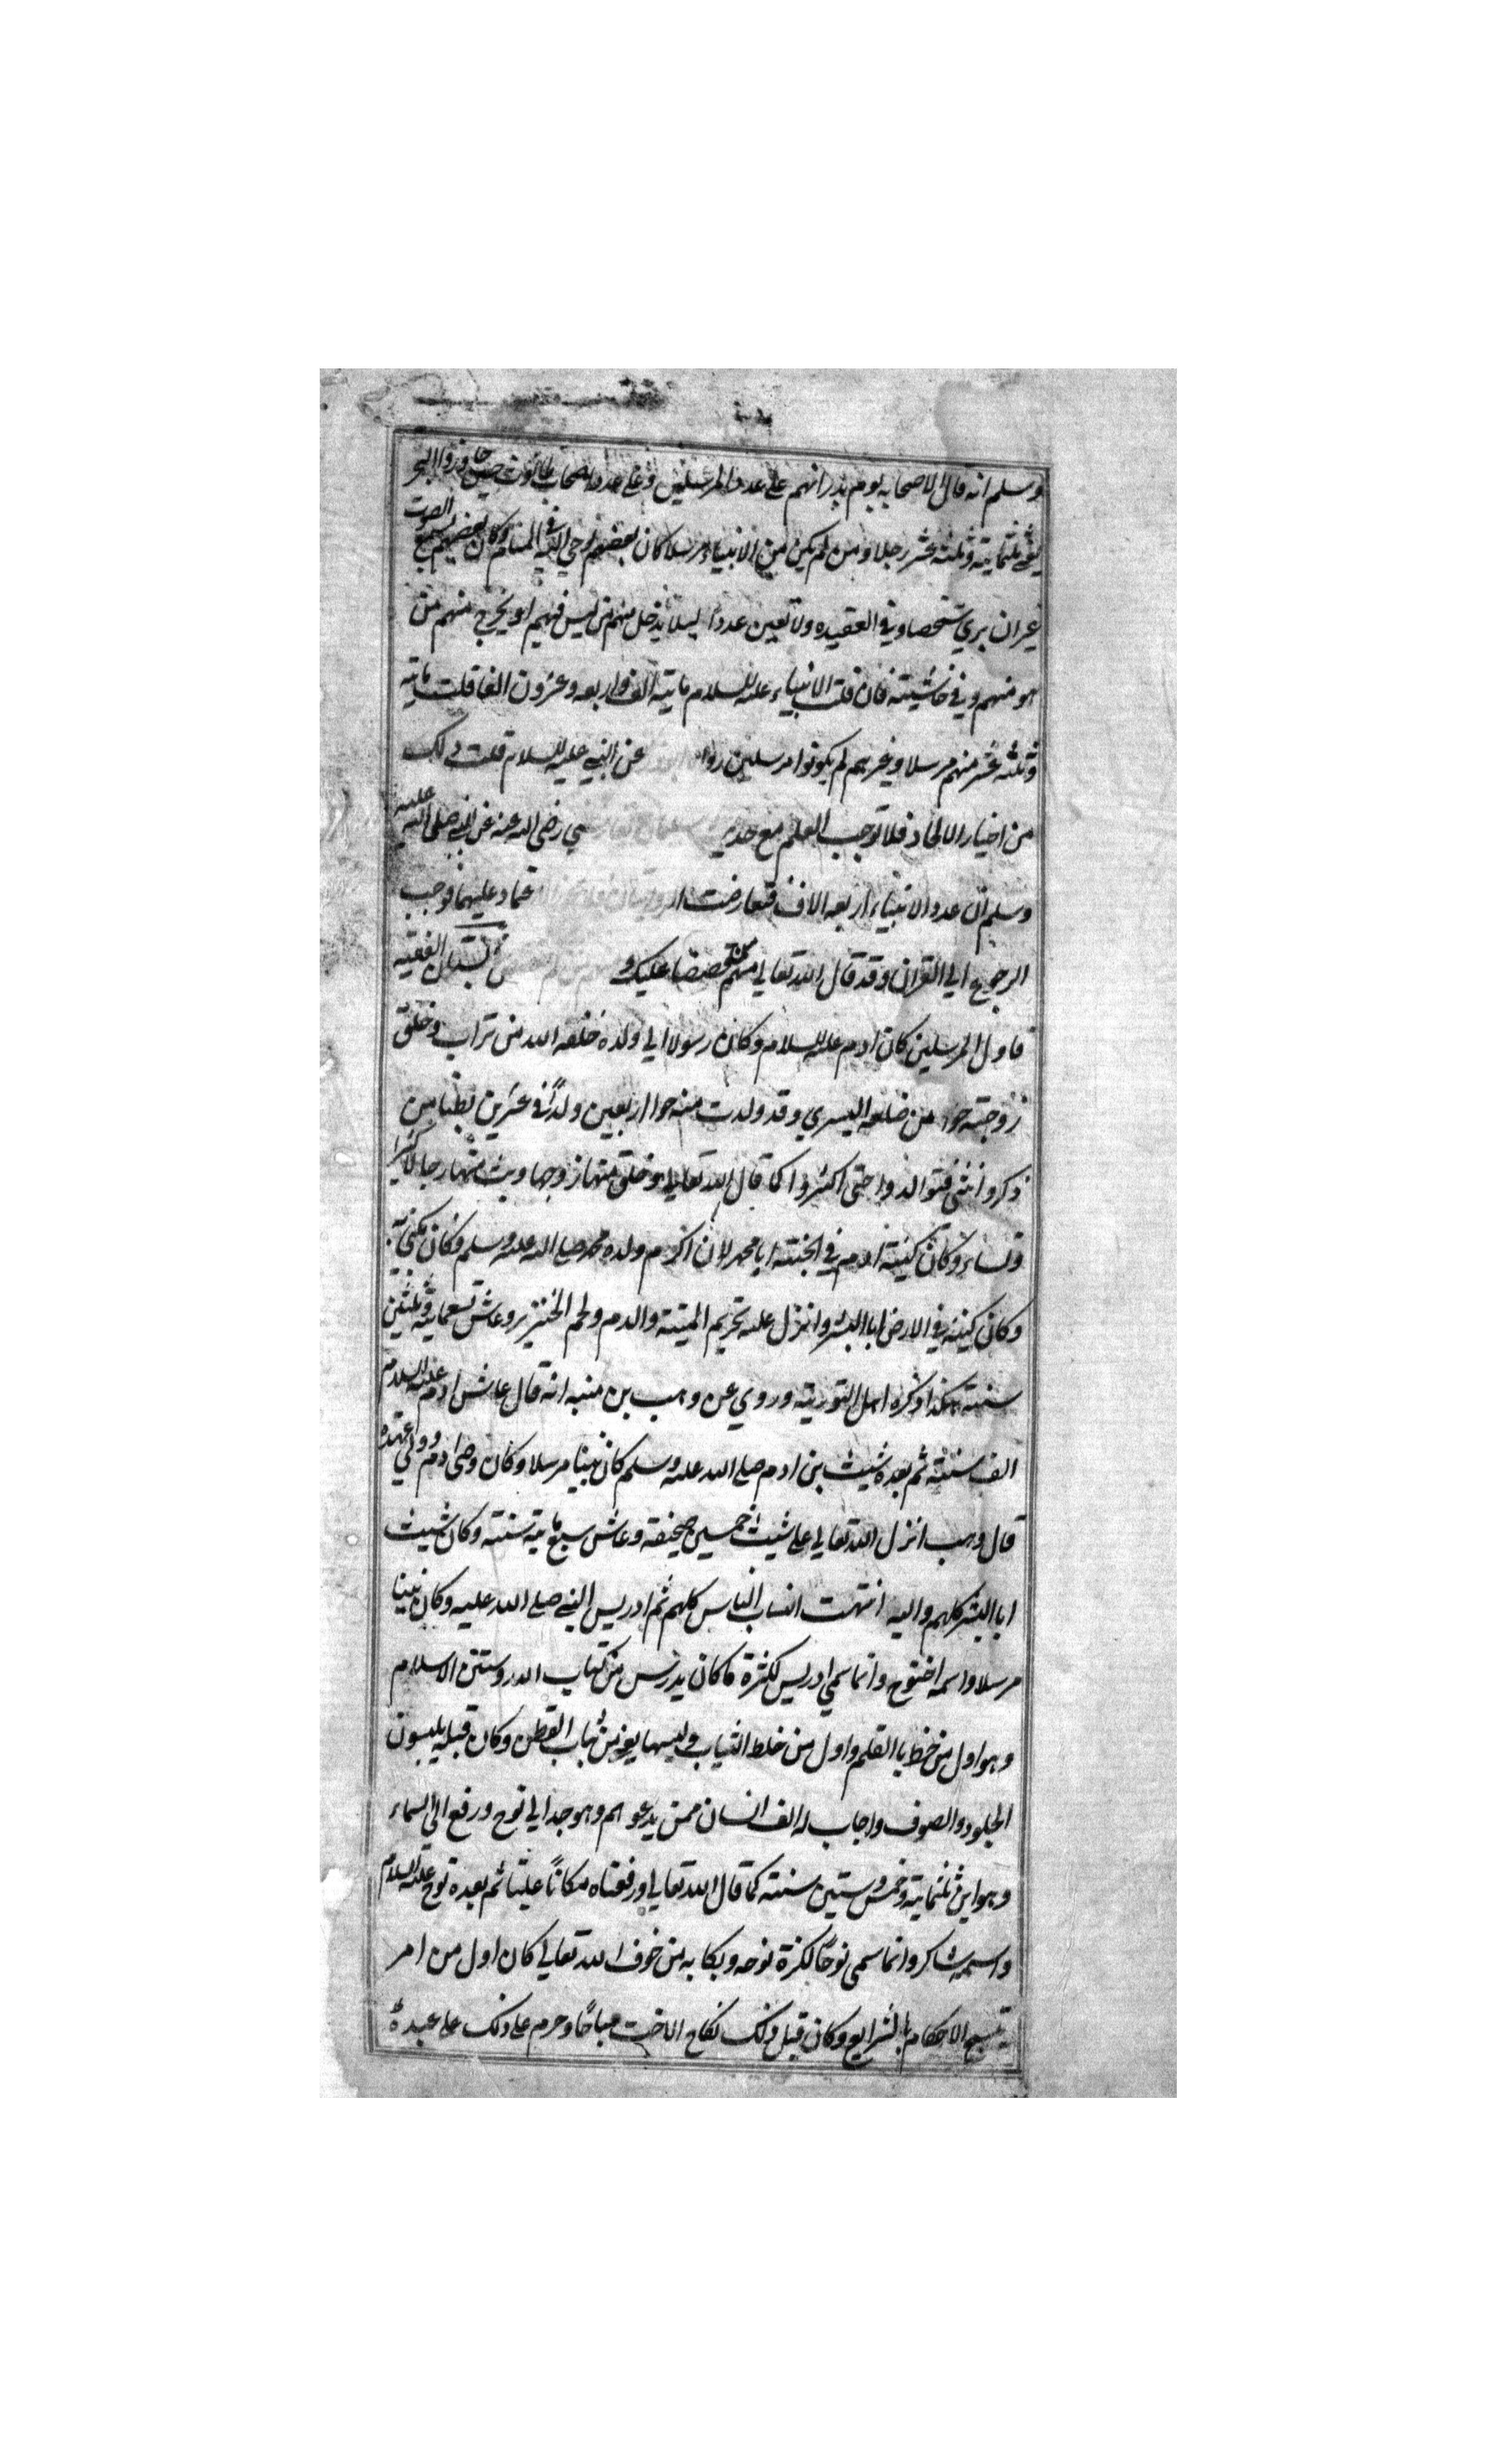 وسلم انه قال لاصحابه يوم بدر انهم على عدد المرسلين وعلى عدد اصحاب طالوت حين جاوزوا البحر
يعني ثلثماية وثلثه عشر رجلا ومن لم يكن من الانبياء مرسلا كان بعضهم يوحي اليه في المنام وكان بعضهم يسمع الصوت
غير ان يري شخصا وفي العقيده ولا تعين عددا ليلا يدخل منهم من ليس فيهم او يخرج منهم من
هو منهم وفي حاشيته فان قلت الانبياء عليه السلام ماية الف واربعه وعشرون الفا قلت ماية
وثلثه عشر منهم مرسلا وغيرهم لم يكونوا مرسلين رواه عن النبي عليه السلام قلت ذلك
من اخبار الاحاد فلا توجب العلم مع حديث رضى الله عنه عن النبي صلى الله عليه
وسلم ان عدد الانبياء اربعه الاف فتعارضت عليهما فوجب
الرجوع الي القران وقد قال الله تعالي منهم من قصصنا عليك و الفقيه
فاول المرسلين كان ادم عليه السلام وكان رسولا الي ولده خلقه الله من تراب وخلق
زوجته حوا من ضلعه اليسري وقد ولدت منه حوا اربعين ولدا في عشرين بطنا من
ذكر وانثى فتوالدوا حتى اكثروا كما قال الله تعالي وخلق منها زوجها وبث منهما رجالا كثيرا
ونساء وكان كنيته ادم في الجنته ابا محمد لان اكرم ولده محمد صلى الله عليه وسلم فكان يكني به
وكان كنيته في الارض ابا البشر وانزل عليه تحريم الميتة والدم ولحم الخنزير وعاش تسعماية وثلثين
سنته هكذا ذكره اهل التورية وروي عن وهب بن منبه انه قال عاش ادم عليه السلام
الف سنته ثم بعده شيث بن ادم صلى الله عليه وسلم كان نبينا مرسلا وكان وصى ادم وولي عهده
قال وهب انزل الله تعالي على شيث خمسين صحيفة وعاش سبع ماية سنته وكان شيث
ابا البشر كلهم واليه انتهت انساب الناس كلهم ثم ادريس النبي صلى الله عليه وكان نبينا
مرسلا واسمه اخنوخ وانما سمي ادريس لكثرة ما كان يدرس من كتاب الله وسنن الاسلام
وهو اول من خط با القلم واول من خاط الثياب ولبسها يعني من ثياب القطن وكان قبله يلبسون
الجلود والصوف واجاب له الف انسان ممن يدعوهم وهو جد ابي نوح ورفع الى السماء
وهو ابن ثلثماية وخمس وستين سنته كما قال الله تعالي ورفعناه مكانا عليا ثم بعده نوح عليه السلام
واسمه شاكر وانما سمى نوحا لكثرة نوحه وبكايه من خوف الله تعالي كان اول من امر
بنسخ الاحكام بالشرايع وكان قبل ذلك نكاح الاخت مباحا وحرم على ذلك على عهده